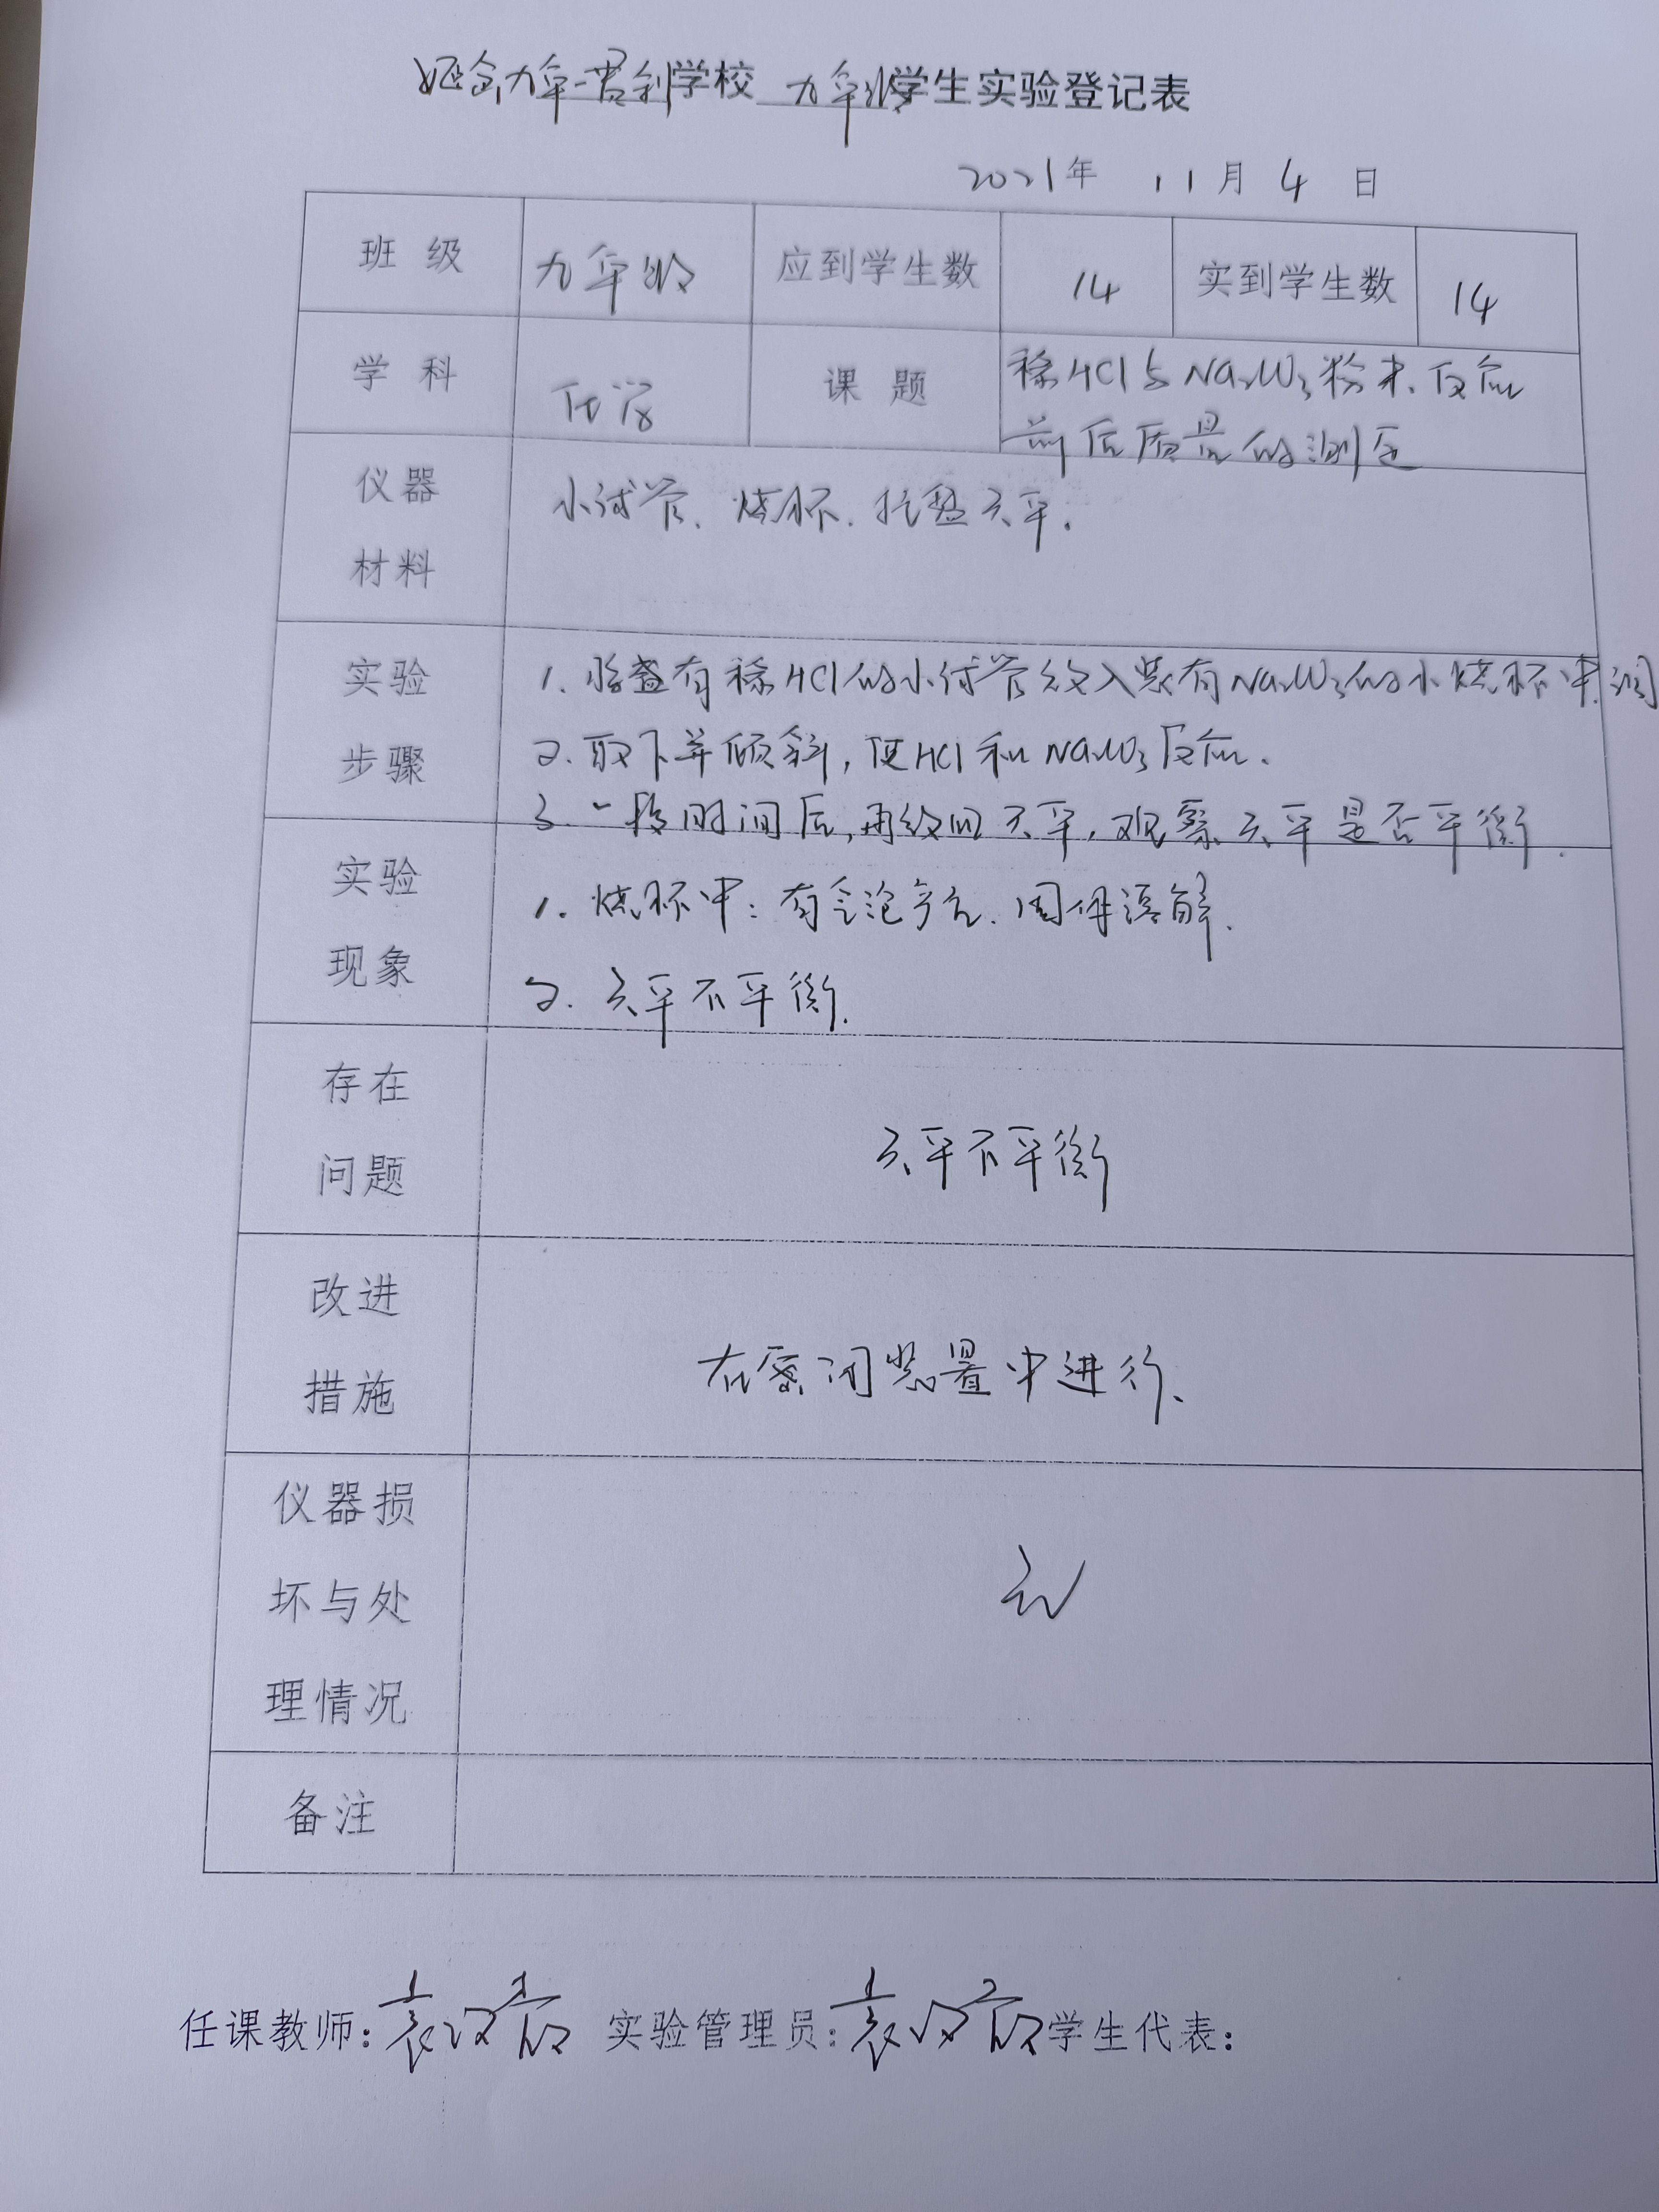 九年一贯制学校 九年级学生实验登记表
2021年 11月 4 日
班 级 九年级 应到学生数 14 实到学生数 14
学 科 化学 课 题 稀HCl与Na₂CO₃粉末反应
前后质量的测定
仪器
材料
小试管、烧杯、托盘天平.
实验
步骤
1. 将盛有稀HCl的小试管放入装有Na₂CO₃的小烧杯中
2. 取下并倾斜,使HCl和Na₂CO₃反应.
3. 一段时间后,再放回天平,观察天平是否平衡.
实验
现象
1. 烧杯中:有气泡产生、固体溶解.
2. 天平不平衡.
存在
问题
天平不平衡
改进
措施
在密闭装置中进行、
仪器损
坏与处
理情况
无
备注
任课教师: 实验管理员: 学生代表: